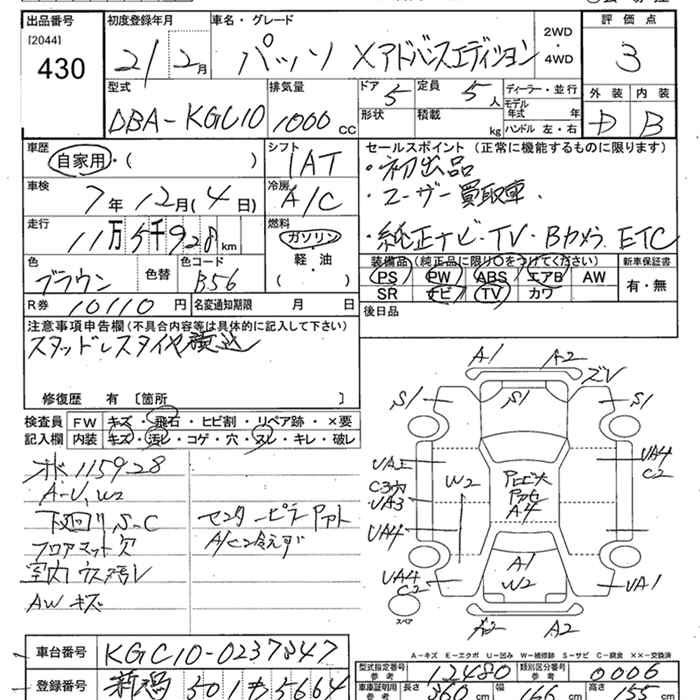 出品番号 初度登録年月 車名・グレード 2WD・4WD 評価点
[2044]
430 21/2月 パッソ Xアドバンスエディション 3
型式 排気量 ドア 5 定員 5人 ディーラー・並行 外装 内装
DBA-KGC10 1000cc 形状 積載 kg モデル年式 年 D B
ハンドル 左・右
車歴 シフト セールスポイント (正常に機能するものに限ります)
自家用・( ) IAT ・初出品
車検 冷房 ・ユーザー買取車.
7年12月(4日) A/C
走行 燃料 ・純正ナビ・TV・Bカメラ. ETC
11万5千928km ガソリン
軽・油
( )
色 色替 色コード 装備品 (純正品に限り○をつけてください) 新車保証書
ブラウン B56 PS PW ABS エアB AW 有・無
SR ナビ TV カワ
R券 10110円 名変通知期限 月 日 後日品
注意事項申告欄 (不具合内容等は具体的に記入して下さい)
スタッドレスタイヤ積込
修復歴 有 〔箇所 〕
検査員 FW キズ・飛石・ヒビ割・リペア跡・×要
記入欄 内装 キズ・汚レ・コゲ・穴・スレ・キレ・破レ
115928
A-U, W2
下廻り, S-C センターピラーアト
フロアマット欠 A/C冷えず
室内ウス汚レ
AWキズ
A1 A2
ズレ
S1 S1 S1
UA4
C2
W2
UA3
UA4
A4
A1
W2
UA4
C2
UA1
スペア
A2 A2
A-キズ E-エクボ U-凹み W-補修跡 S-サビ C-腐食 ××-交換済
車台番号 KGC10-0237847
型式指定番号 参考 12480 類別区分番号 参考 0006
登録番号 新潟 501 5664
車庫証明用 参考 長さ 360cm 幅 166cm 高さ 153cm